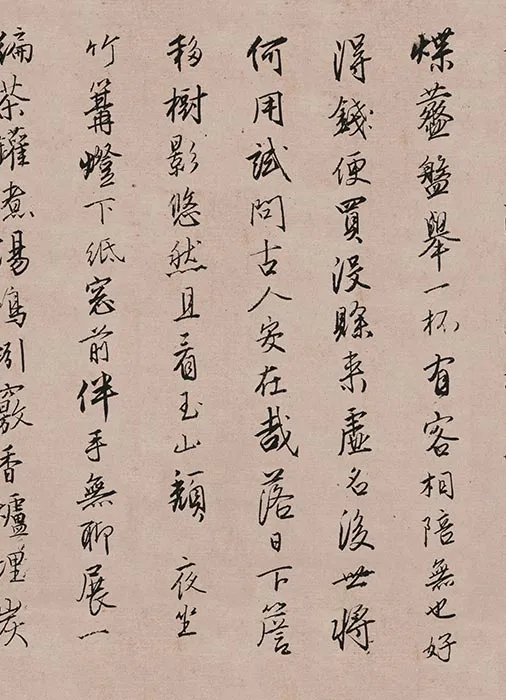 煠虀盤舉一杯有客相陪無也好
得錢便買沒賒來虛名後世將
何用試問古人安在哉落日下簷
移樹影悠然且看玉山頹 夜坐
竹篝燈下紙窓前伴手無聊展一
編茶罐煮湯鳴引竅香爐埋炭